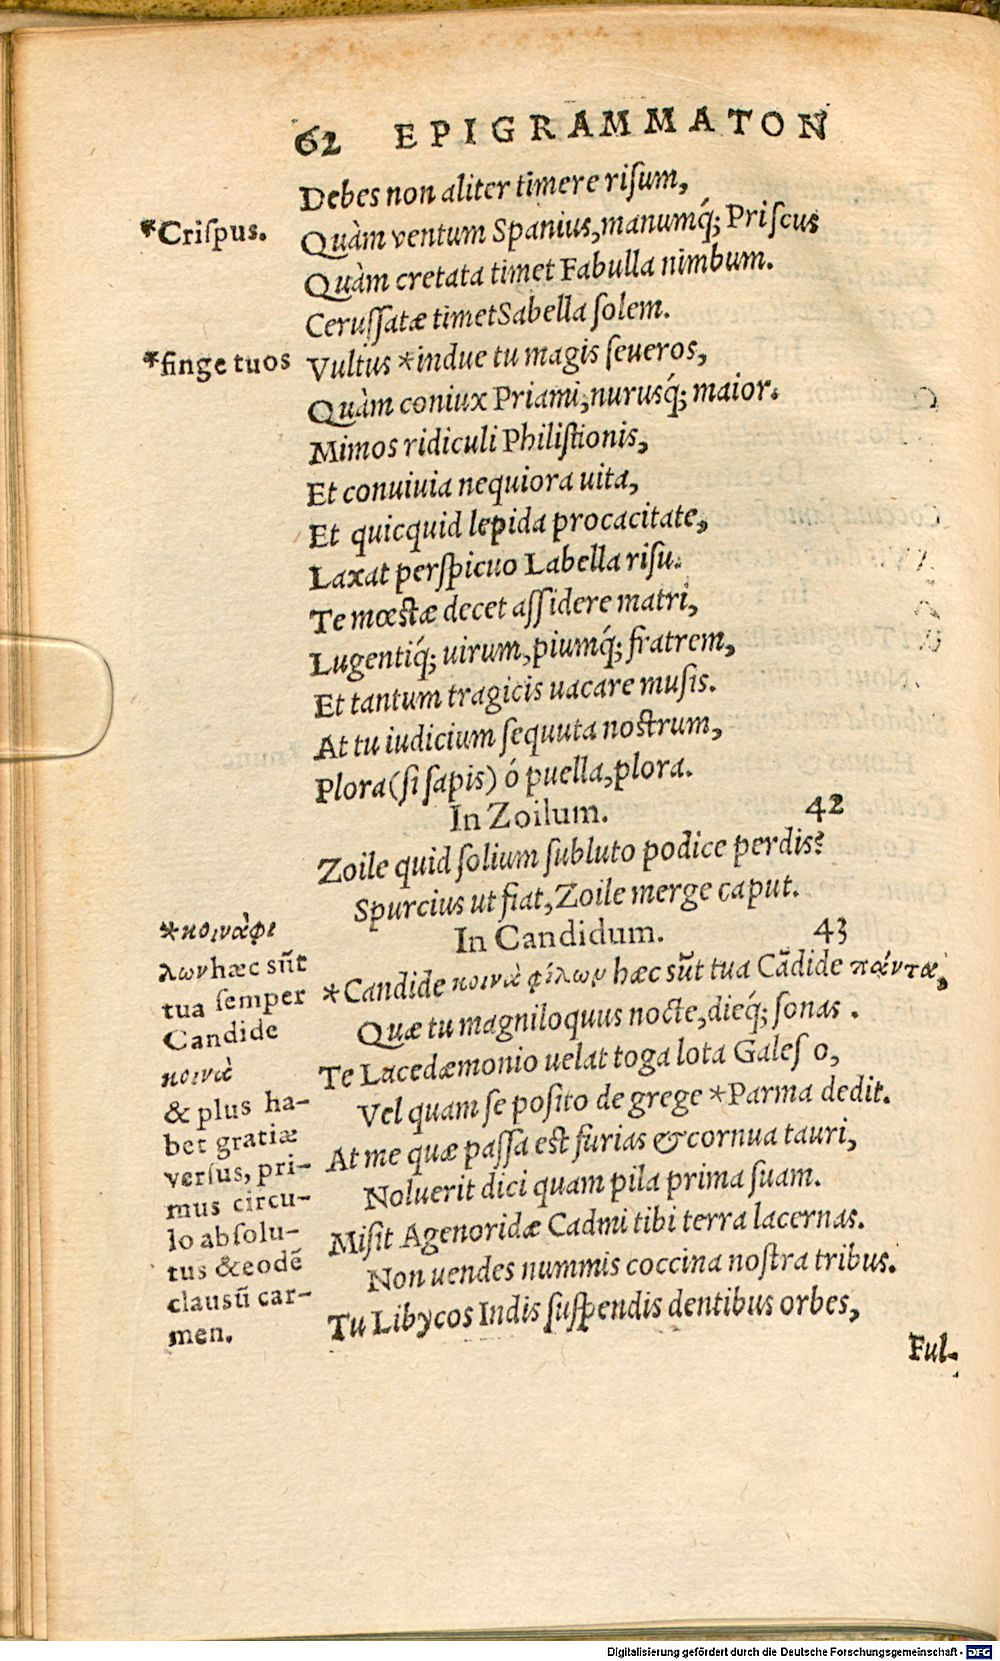 62 EPIGRAMMATON
Debes non aliter timere risum,
*Crispus.
Quàm ventum Spanius, manumq́; Priscus
Quàm cretata timet Fabulla nimbum.
Cerussatæ timet Sabella solem.
*finge tuos
Vultus *indue tu magis seueros,
Quàm coniux Priami, nurusq́; maior.
Mimos ridiculi Philistionis,
Et conuiuia nequiora uita,
Et quicquid lepida procacitate,
Laxat perspicuo Labella risu.
Te mœstæ decet assidere matri,
Lugentiq́; uirum, piumq́; fratrem,
Et tantum tragicis uacare musis.
At tu iudicium sequuta nostrum,
Plora (si sapis) ó puella, plora.
In Zoilum. 42
Zoile quid solium subluto podice perdis?
Spurcius ut fiat, Zoile merge caput.
In Candidum. 43
*κοινὰφι
λων hæc sũt
tua semper
Candide
κοινὰ
& plus ha-
bet gratiæ
versus, pri-
mus circu-
lo absolu-
tus & eodẽ
clausũ car-
men.
*Candide κοινὰ φίλων hæc sũt tua Cãdide πάντα,
Quæ tu magniloquus nocte, dieq́; sonas.
Te Lacedæmonio uelat toga lota Galeso,
Vel quam seposito de grege *Parma dedit.
At me quæ passa est furias & cornua tauri,
Noluerit dici quam pila prima suam.
Misit Agenoridæ Cadmi tibi terra lacernas.
Non uendes nummis coccina nostra tribus.
Tu Libycos Indis suspendis dentibus orbes,
Ful-
Digitalisierung gefördert durch die Deutsche Forschungsgemeinschaft - DFG